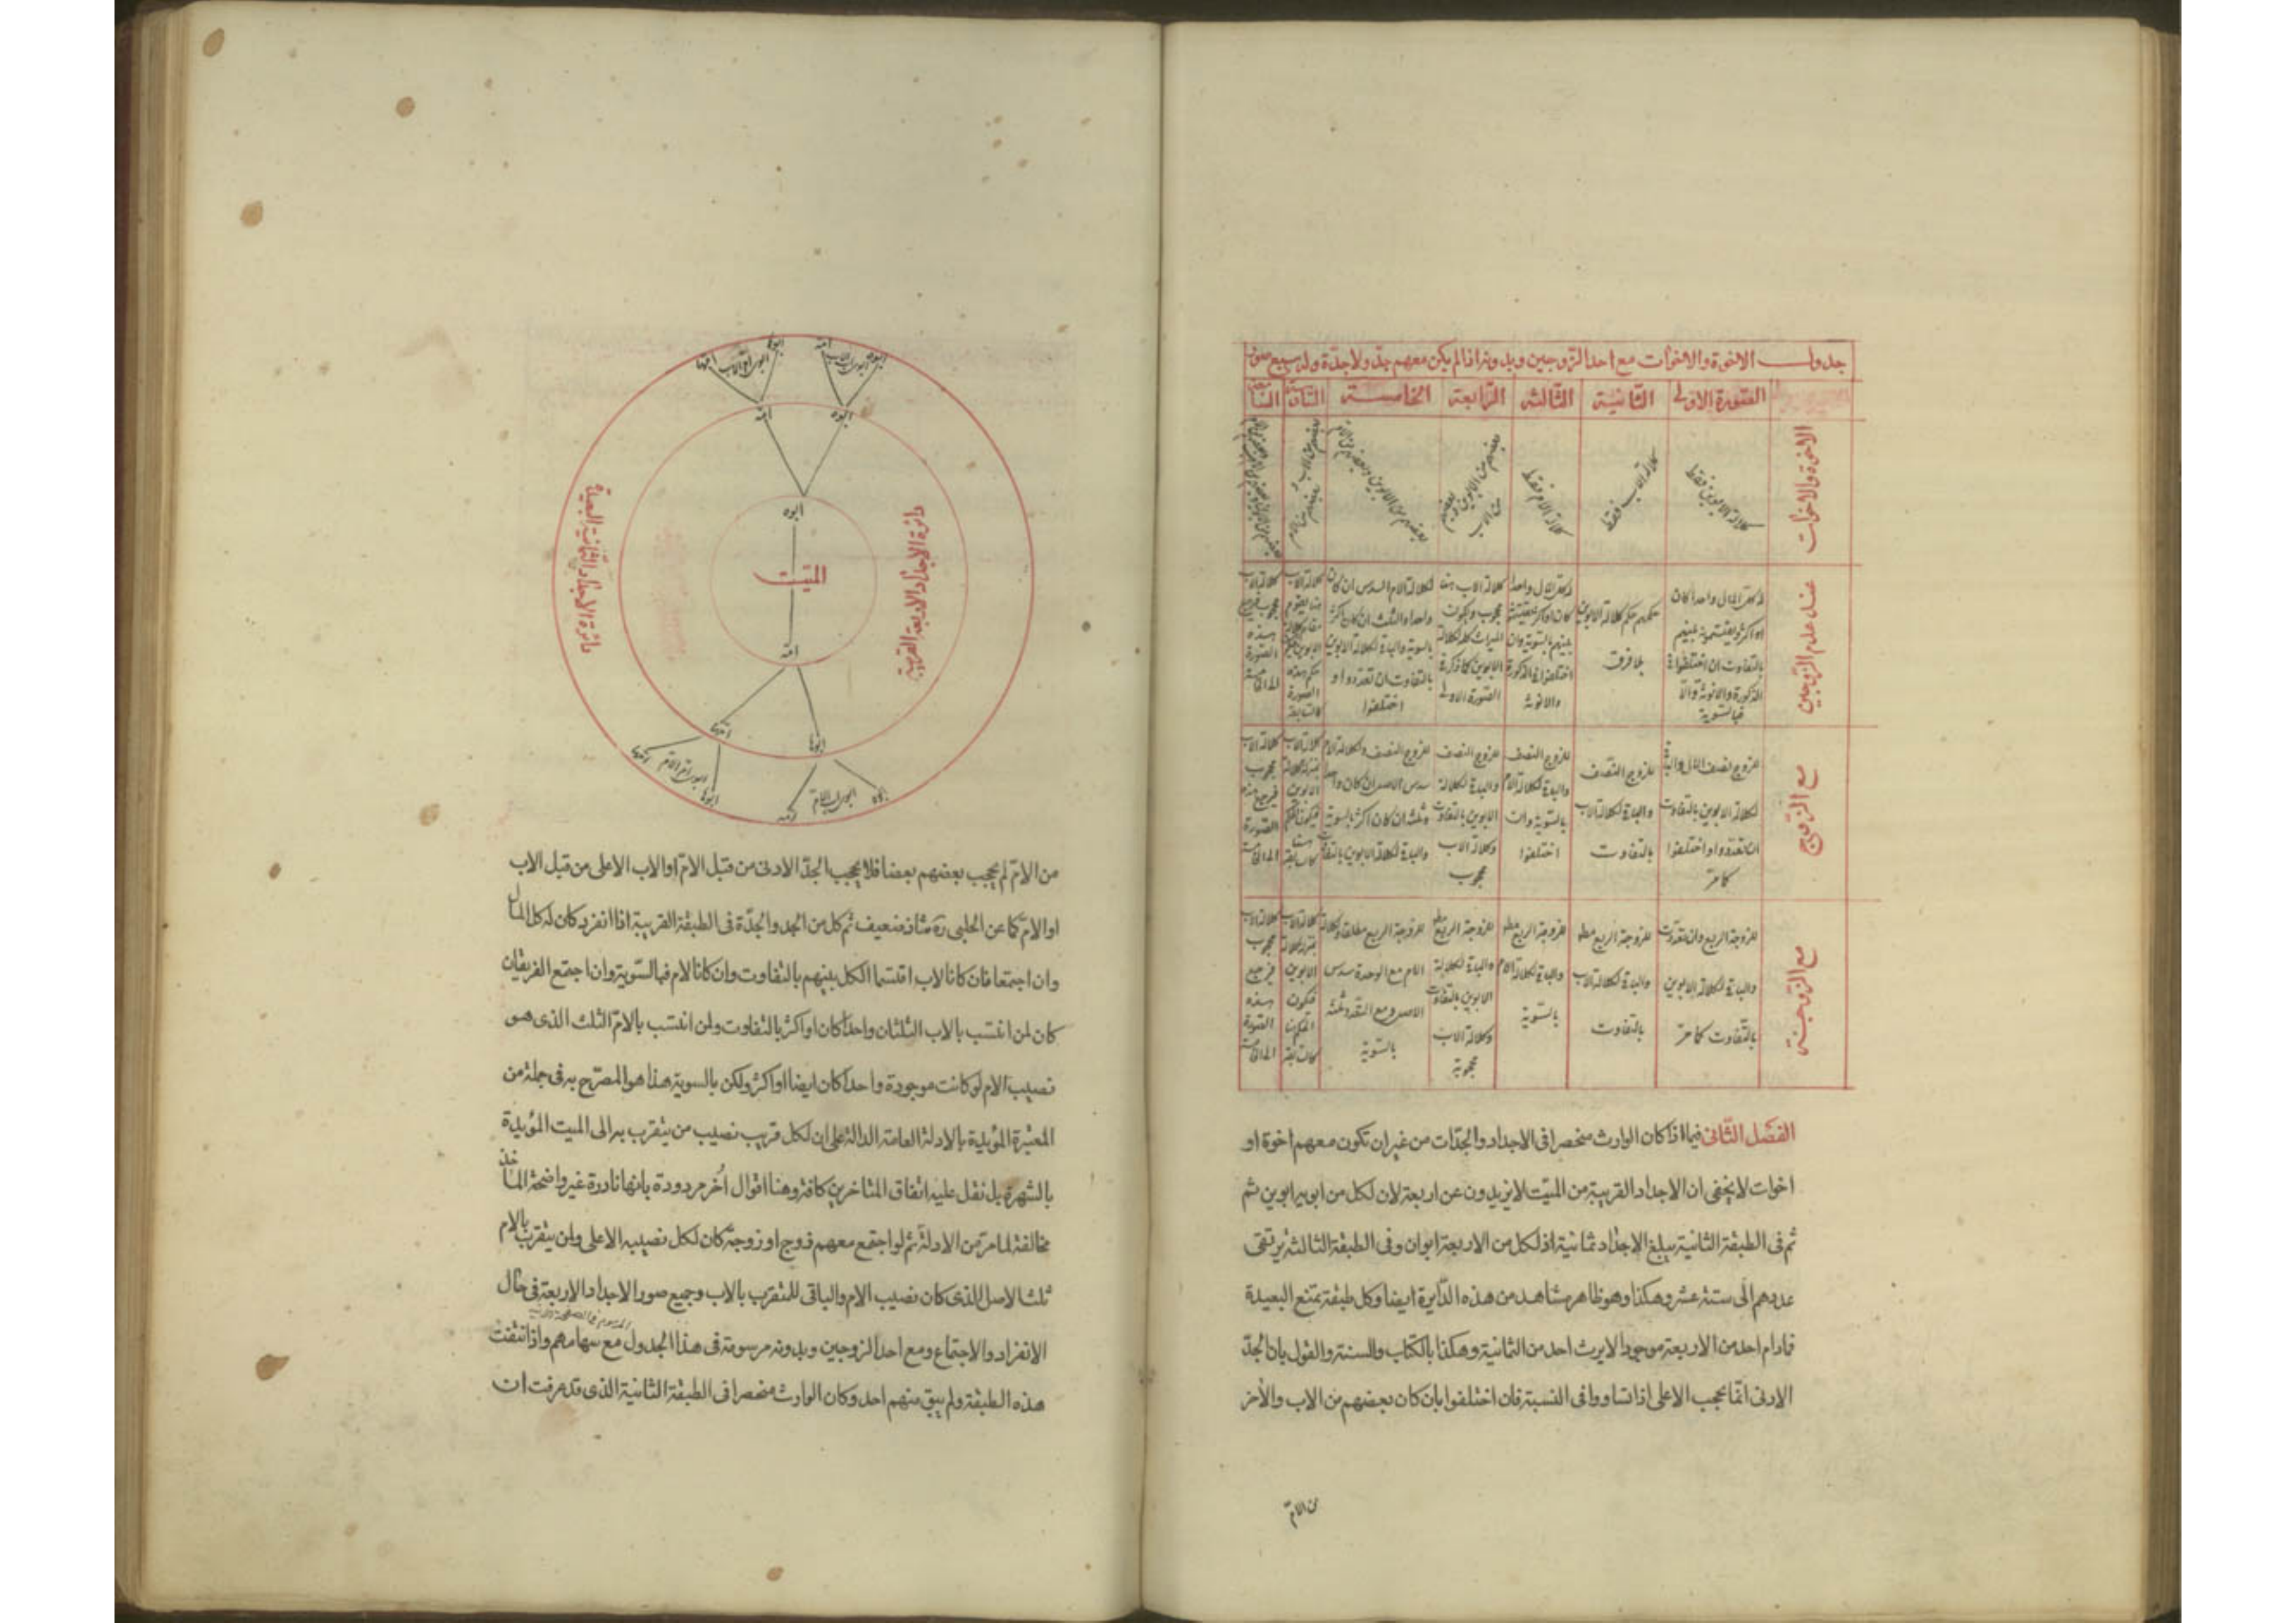 جدول الاخوة والاخوات مع احد الزوجين وبدونهما اذا لم يكن معهم جد ولا جدة وله سبع صور
الصورة الاولى
الثانية
الثالثة
الرابعة
الخامسة
السادسة
السابعة
الاخوة والاخوات
كلالة الابوين فقط
كلالة الاب فقط
كلالة الام فقط
بعضهم من الابوين وبعضهم
من الاب
بعضهم من الابوين وبعضهم
بعضهم من الاب و
بعضهم من الام
عند عدم الزوجين
لهم المال واحدا كان
او اكثر ويقتسمونه بينهم
بالتفاوت ان اختلفوا في
الذكورة والانوثة والا
فبالسوية
حكمهم حكم كلالة الابوين
بلا فرق
بينهم بالسوية وان
اختلفوا في الذكورة
والانوثة
كلالة الاب هنا
محجوب ويكون
الميراث كله لكلالة
الابوين كما ذكر في
الصورة الاولى
لكلالة الام السدس ان كان
واحدا والثلث ان كان اكثر
بالسوية والباقي لكلالة الابوين
بالتفاوت ان تعددوا و
اختلفوا
مع الزوج
للزوج نصف المال والباقي
لكلالة الابوين بالتفاوت
ان تعددوا واختلفوا
كما مر
للزوج النصف
والباقي لكلالة الاب
بالتفاوت
للزوج النصف
والباقي لكلالة الام
بالسوية وان
اختلفوا
للزوج النصف
والباقي لكلالة
الابوين بالتفاوت
وكلالة الاب
محجوب
للزوج النصف ولكلالة الام
سدس الاصل ان كان واحدا
وثلثه ان كان اكثر بالسوية
والباقي لكلالة الابوين بالتفاوت
مع الزوجة
للزوجة الربع وان تعددت
والباقي لكلالة الابوين
بالتفاوت كما مر
للزوجة الربع مط
والباقي لكلالة الاب
بالتفاوت
للزوجة الربع مط
والباقي لكلالة الام
بالسوية
للزوجة الربع مط
والباقي لكلالة
الابوين بالتفاوت
وكلالة الاب
محجوبة
للزوجة الربع مطلقا ولكلالة
الام مع الوحدة سدس
الاصل ومع التعدد ثلثه
بالسوية
الفصل الثاني فيما اذا كان الوارث منحصرا في الاجداد والجدات من غير ان تكون معهم اخوة او
اخوات لا يخفى ان الاجداد القريبة من الميت لا يزيدون عن اربعة لان لكل من ابويه ابوين ثم
ثم في الطبقة الثانية يبلغ الاجداد ثمانية اذ لكل من الاربعة ابوان وفي الطبقة الثالثة يرتقى
عددهم الى ستة عشر وهكذا وهو ظاهر مشاهد من هذه الدايرة ايضا وكل طبقة تمنع البعيدة
فمادام احد من الاربعة موجودا لا يرث احد من الثمانية وهكذا بالكتاب والسنة والقول بان الجد
الادنى انما يحجب الاعلى اذا تساووا في النسبة فان اختلفوا بان كان بعضهم من الاب والاخر
من الام
ابوه
امه
ابوها
امها
ابوه
امه
دائرة الاجداد الثمانية البعيدة
دائرة الاجداد الاربعة القريبة
ابوه
الميت
امه
امها
ابوها
امها
ابوي ام الام
ابوها
امه
ابوي اب الام
ابوه
من الام لم يحجب بعضهم بعضا فلا يحجب الجد الادنى من قبل الام او الاب الاعلى من قبل الاب
او الام كما عن الحلبي ره شاذ ضعيف ثم كل من الجد والجدة في الطبقة القريبة اذا انفرد كان له كل المال
وان اجتمعا فان كانا لاب اقتسما الكل بينهم بالتفاوت وان كانا لام فبالسوية وان اجتمع الفريقان
كان لمن انتسب بالاب الثلثان واحدا كان او اكثر بالتفاوت ولمن انتسب بالام الثلث الذى هو
نصيب الام لو كانت موجودة واحدا كان ايضا او اكثر ولكن بالسوية هذا هو المصرح به في جملة من
المعتبرة المؤيدة بالادلة العامة الدالة على ان لكل قريب نصيب من يتقرب به الى الميت المؤيدة
بالشهرة بل نقل عليه اتفاق المتاخرين كافة وهنا اقوال اخر مردودة بانها نادرة غير واضحة الماخذ
مخالفة لما مر من الادلة ثم لو اجتمع معهم زوج او زوجة كان لكل نصيبه الاعلى ولمن يتقرب بالام
ثلث الاصل الذى كان نصيب الام والباقي للمتقرب بالاب وجميع صور الاجداد الاربعة في حال
الانفراد والاجتماع ومع احد الزوجين وبدونه مرسومة في هذا الجدول مع سهامهم واذا انتفت
هذه الطبقة ولم يبق منهم احد وكان الوارث منحصرا في الطبقة الثانية الذى قد عرفت ان